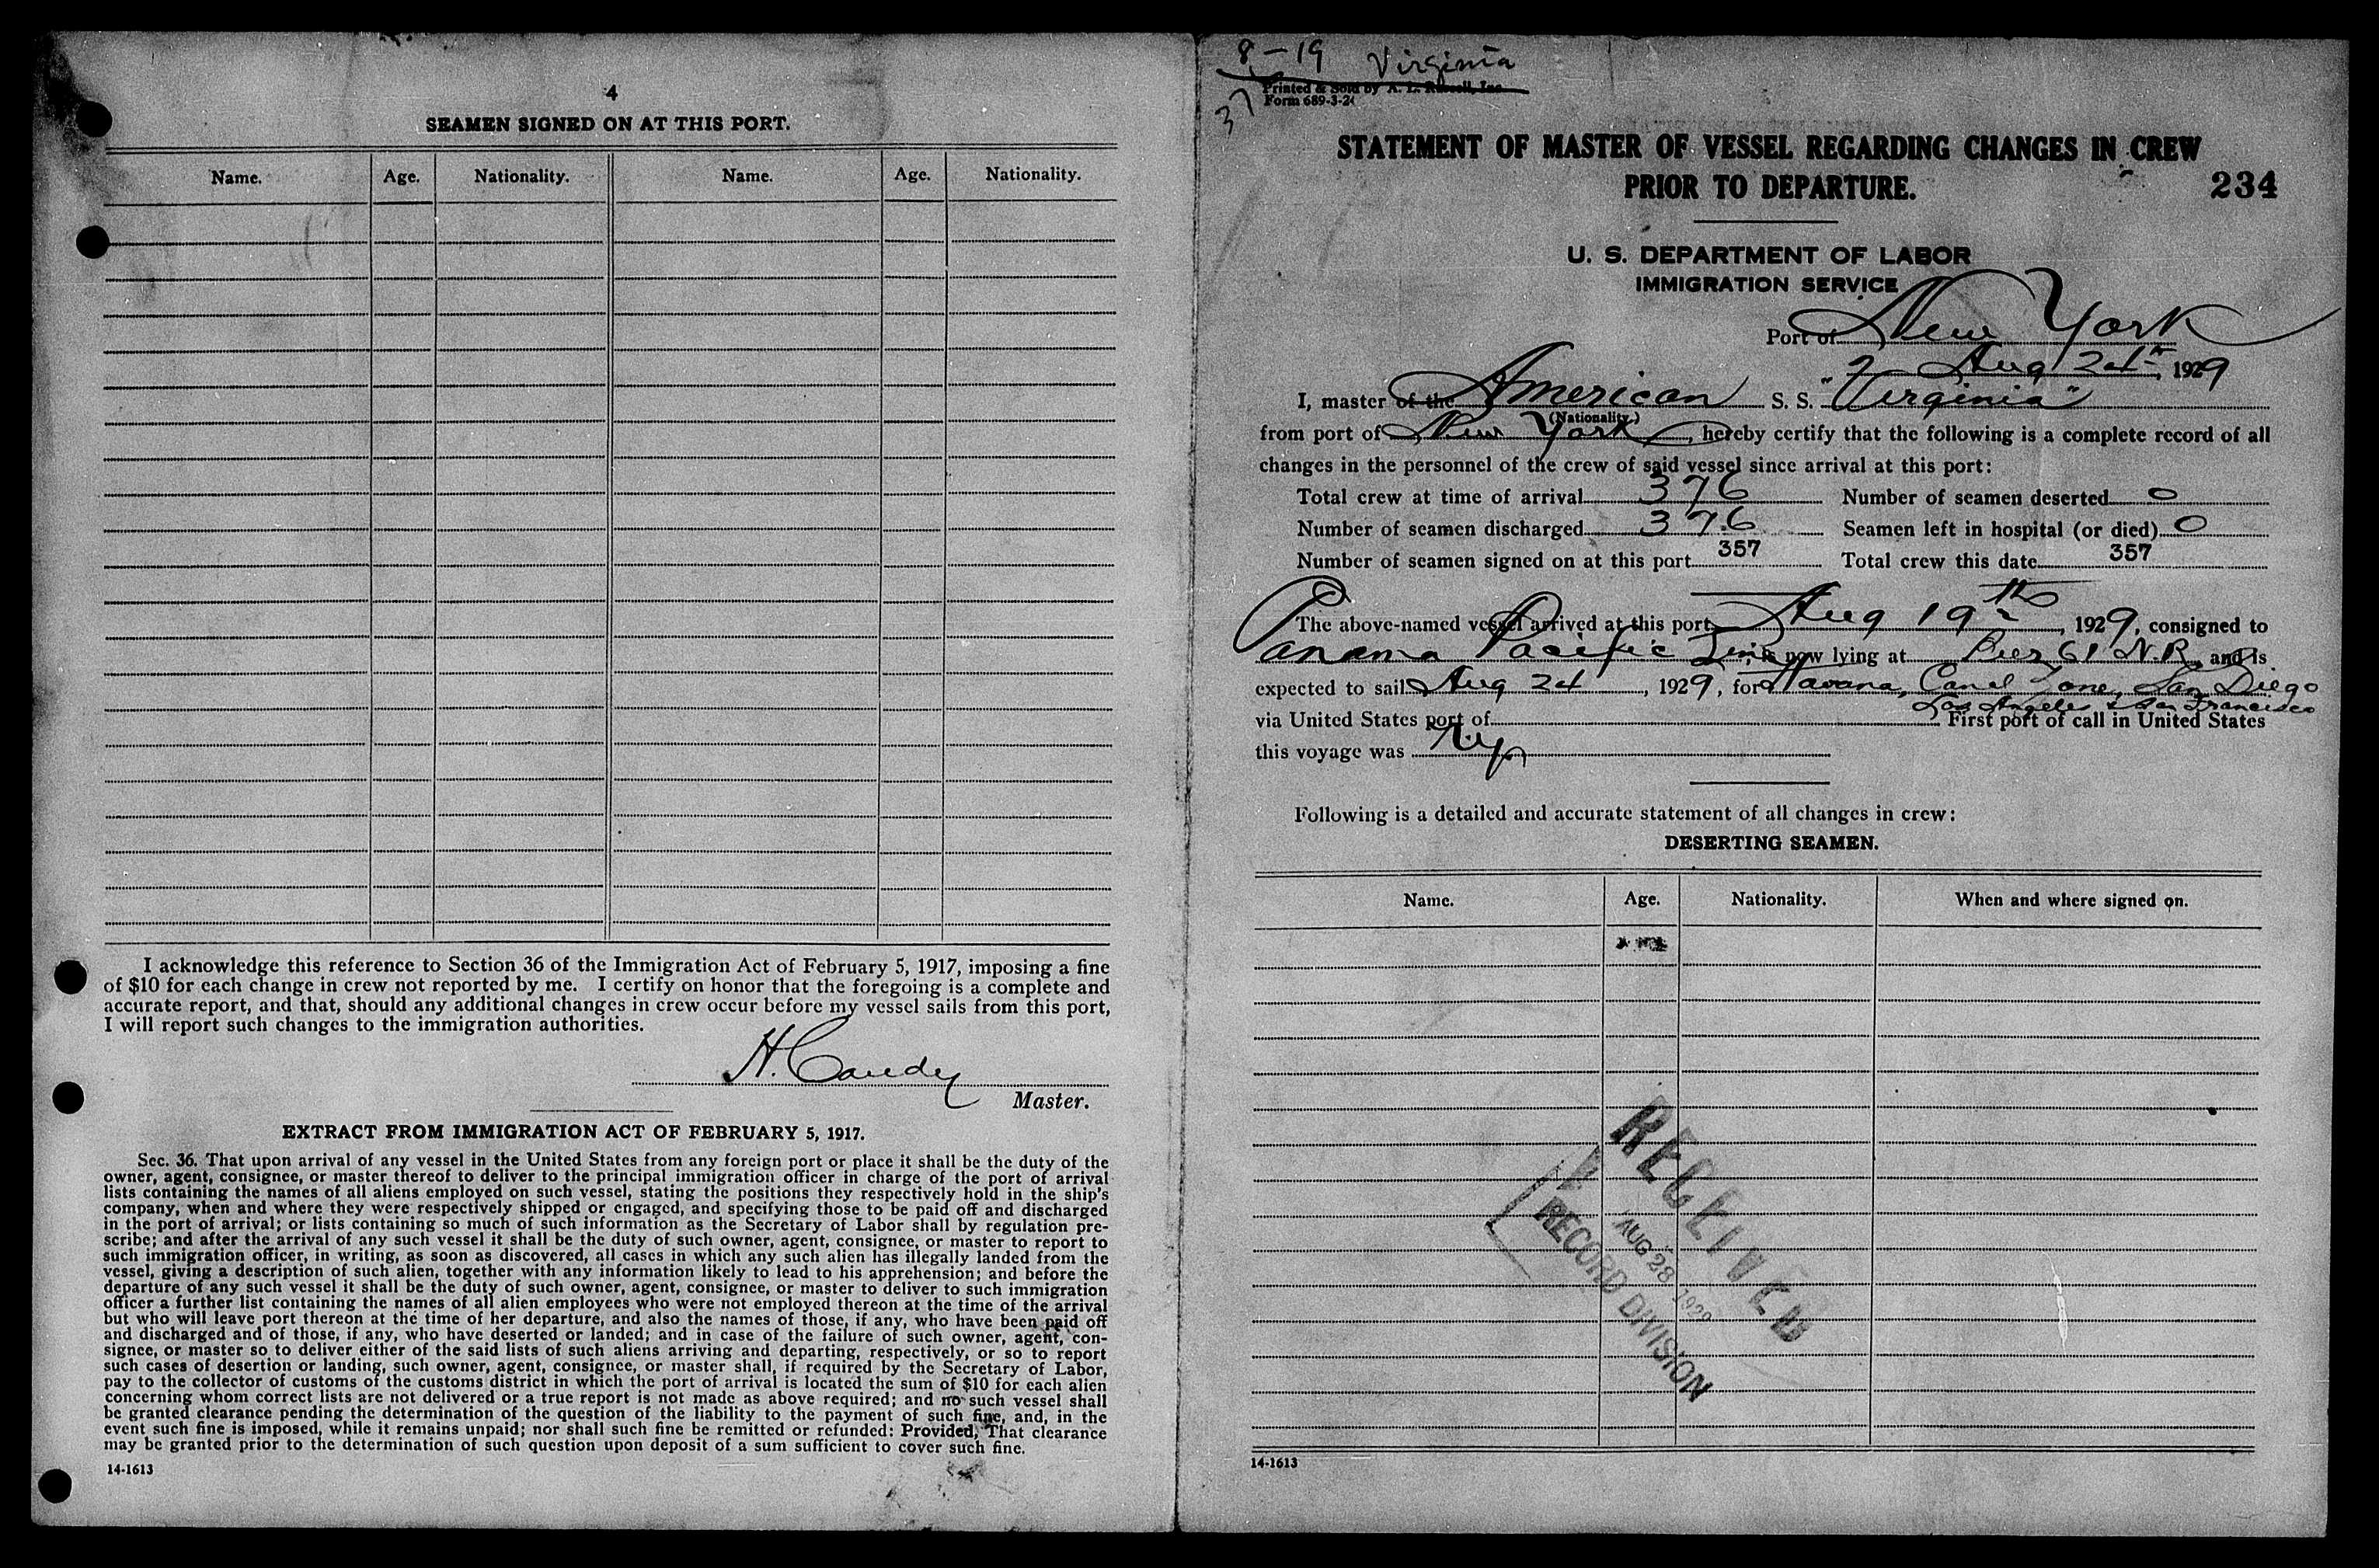 4
SEAMEN SIGNED ON AT THIS PORT.
Name. Age. Nationality. Name. Age. Nationality.
I acknowledge this reference to Section 36 of the Immigration Act of February 5, 1917, imposing a fine
of $10 for each change in crew not reported by me. I certify on honor that the foregoing is a complete and
accurate report, and that, should any additional changes in crew occur before my vessel sails from this port,
I will report such changes to the immigration authorities.
H. Candy
Master.
EXTRACT FROM IMMIGRATION ACT OF FEBRUARY 5, 1917.
Sec. 36. That upon arrival of any vessel in the United States from any foreign port or place it shall be the duty of the
owner, agent, consignee, or master thereof to deliver to the principal immigration officer in charge of the port of arrival
lists containing the names of all aliens employed on such vessel, stating the positions they respectively hold in the ship's
company, when and where they were respectively shipped or engaged, and specifying those to be paid off and discharged
in the port of arrival; or lists containing so much of such information as the Secretary of Labor shall by regulation pre-
scribe; and after the arrival of any such vessel it shall be the duty of such owner, agent, consignee, or master to report to
such immigration officer, in writing, as soon as discovered, all cases in which any such alien has illegally landed from the
vessel, giving a description of such alien, together with any information likely to lead to his apprehension; and before the
departure of any such vessel it shall be the duty of such owner, agent, consignee, or master to deliver to such immigration
officer a further list containing the names of all alien employees who were not employed thereon at the time of the arrival
but who will leave port thereon at the time of her departure, and also the names of those, if any, who have been paid off
and discharged and of those, if any, who have deserted or landed; and in case of the failure of such owner, agent, con-
signee, or master so to deliver either of the said lists of such aliens arriving and departing, respectively, or so to report
such cases of desertion or landing, such owner, agent, consignee, or master shall, if required by the Secretary of Labor,
pay to the collector of customs of the customs district in which the port of arrival is located the sum of $10 for each alien
concerning whom correct lists are not delivered or a true report is not made as above required; and no such vessel shall
be granted clearance pending the determination of the question of the liability to the payment of such fine, and, in the
event such fine is imposed, while it remains unpaid; nor shall such fine be remitted or refunded: Provided, That clearance
may be granted prior to the determination of such question upon deposit of a sum sufficient to cover such fine.
14-1613
8-19 Virginia
Printed & Sold by A. L. Russell, Inc.
37 Form 689-3-2
STATEMENT OF MASTER OF VESSEL REGARDING CHANGES IN CREW
PRIOR TO DEPARTURE.
234
U. S. DEPARTMENT OF LABOR
IMMIGRATION SERVICE
Port of New York
Aug 24th, 1929
I, master of the American S. S. "Virginia"
(Nationality.)
from port of New York, hereby certify that the following is a complete record of all
changes in the personnel of the crew of said vessel since arrival at this port:
Total crew at time of arrival 376 Number of seamen deserted 0
Number of seamen discharged 376 Seamen left in hospital (or died) 0
Number of seamen signed on at this port 357 Total crew this date 357
The above-named vessel arrived at this port Aug 19th, 1929, consigned to
Panama Pacific Line, is now lying at Pier 61 N.R., and is
expected to sail Aug 24, 1929, for Havana, Canal Zone, San Diego
Los Angeles & San Francisco
via United States port of First port of call in United States
this voyage was N.Y.
Following is a detailed and accurate statement of all changes in crew:
DESERTING SEAMEN.
Name. Age. Nationality. When and where signed on.
RECEIVED
AUG 28 1929
RECORD DIVISION
14-1613